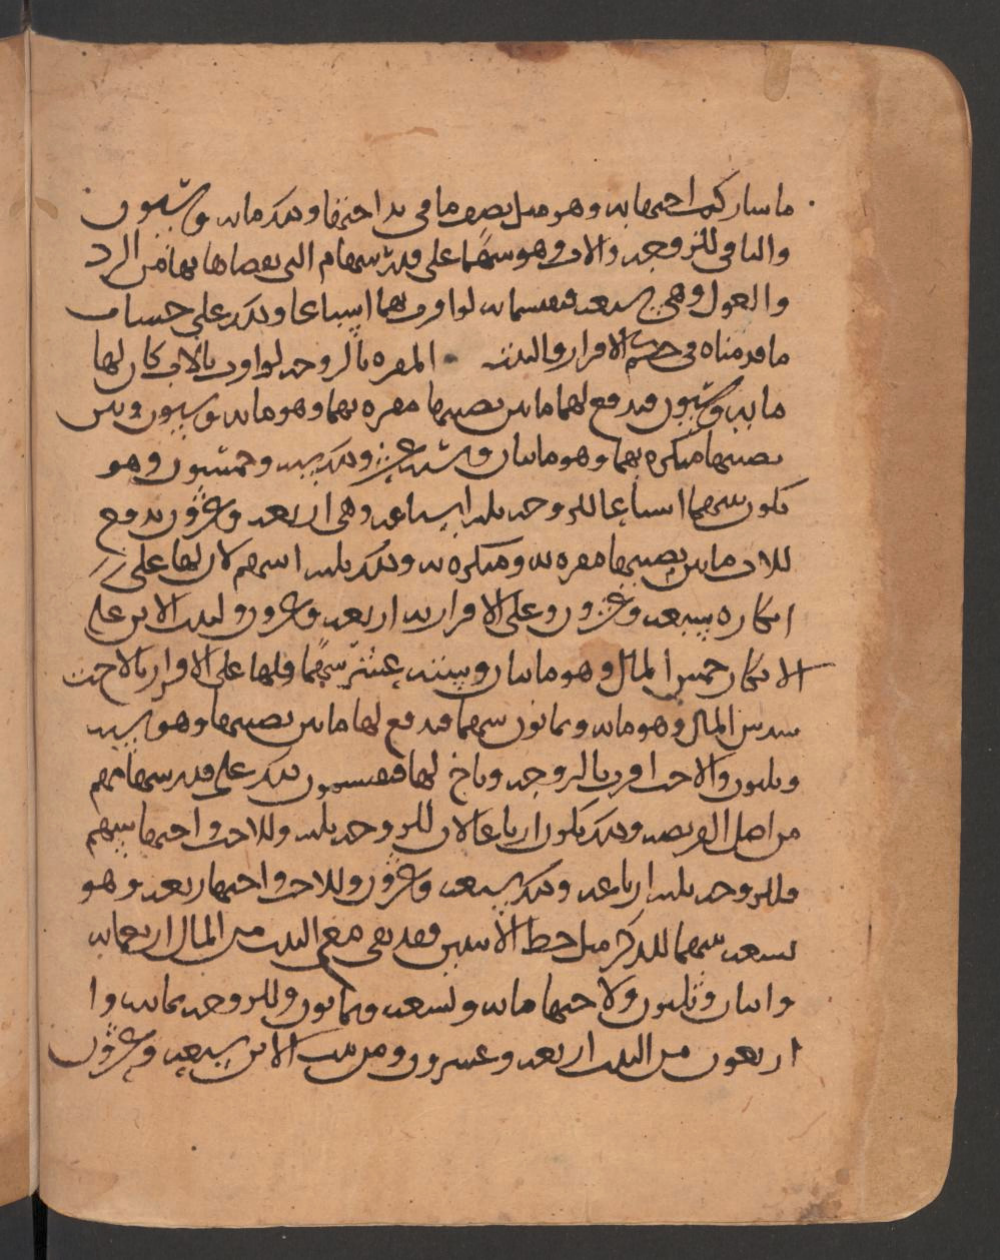 ما شاركت احتها به وهو مثل نصف ما في يد احتها وذلك مايه وستون
والباقي للزوجه والاب وهو سهما على قدر سهامهم التي نقصاها بهما من الرد
والعول وهي سبعه فيقسمانه لو اقرت بهما اسباعا وذلك على حساب
ما قدمناه في الاقرار والبنت المقره بالزوجه لو اقرت بالاب كان لها
مايه وستون فيدفع لهما ما بين نصيبها مقره بهما وهو مايه وستون وبين
نصيبها منكره بهما وهو مايتان وسته عشر وذلك سته وخمسون وهو
يكون سهما اسباعا للزوجه ثلثه اسباعه وهي اربعه وعشرون يدفع
للاب ما بين نصيبها مقره به ومنكره به وذلك ثلثه اسهم لان لها على
انكاره سبعه وعشرون وعلى الاقرار به اربعه وعشرون ولبنت الابن على
الانكار خمس المال وهو مايتان وسته عشر سهما ولها على الاقرار بالاخت
سدس المال وهو مايه وثمانون سهما فيدفع لها ما بين نصيبها وهو سته
وثلثون والاخت اقرت بالزوجه وباخ لها فيقسمون ذلك على قدر سهامهم
من اصل الفريضه وذلك يكون ارباعا لان للزوجه ثلثه وللاخت واخيها سهم
فللزوجه ثلثه ارباعه وذلك سبعه وعشرون وللاخت واخيها ربعه وهو
تسعه سهما للذكر مثل حظ الانثيين فقد بقي مع البنت من المال اربعمايه
واثنان وثلثون ولاختها مايه وتسعه وثمانون وللزوجه ثمانيه وا
اربعون من البنت اربعه وعشرون ومن بنت الابن سبعه وعشرون